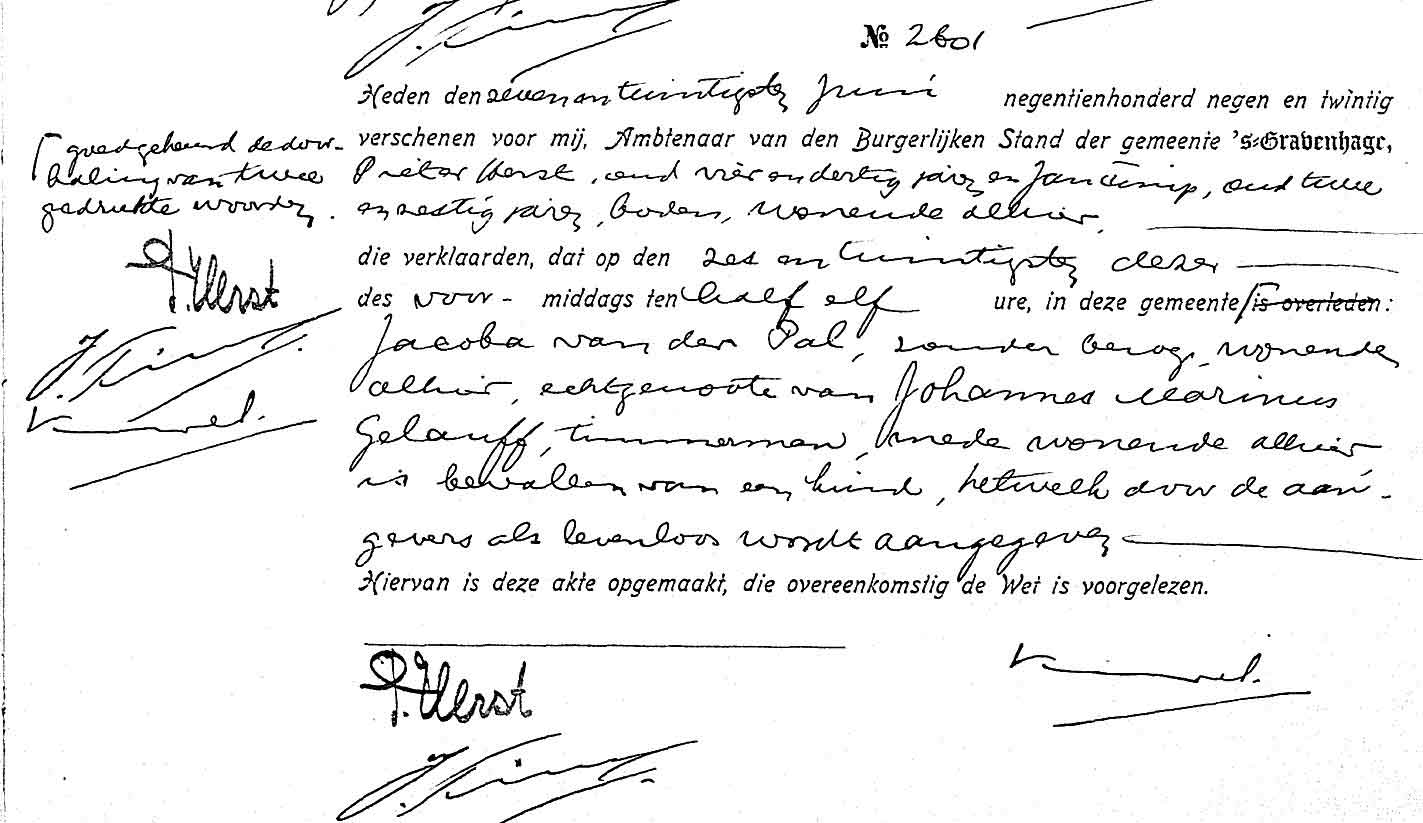 No 2601
Heden den zeven en twintigsten Juni negentienhonderd negen en twintig
verschenen voor mij, Ambtenaar van den Burgerlijken Stand der gemeente 's-Gravenhage,
Pieter Herst, oud vier en dertig jaren en Jan, oud twee
en zestig jaren, boden, wonende alhier,
die verklaarden, dat op den zes en twintigsten dezer
des voor- middags ten half elf ure, in deze gemeente is overleden:
Jacoba van der Pal, zonder beroep, wonende
alhier, echtgenoote van Johannes Marinus
Gelauff, timmerman, mede wonende alhier
is bevallen van een kind, hetwelk door de aan-
gevers als levenloos wordt aangegeven
Hiervan is deze akte opgemaakt, die overeenkomstig de Wet is voorgelezen.
goedgekeurd de door-
haling van twee
gedrukte woorden.
P. Herst
P. Herst